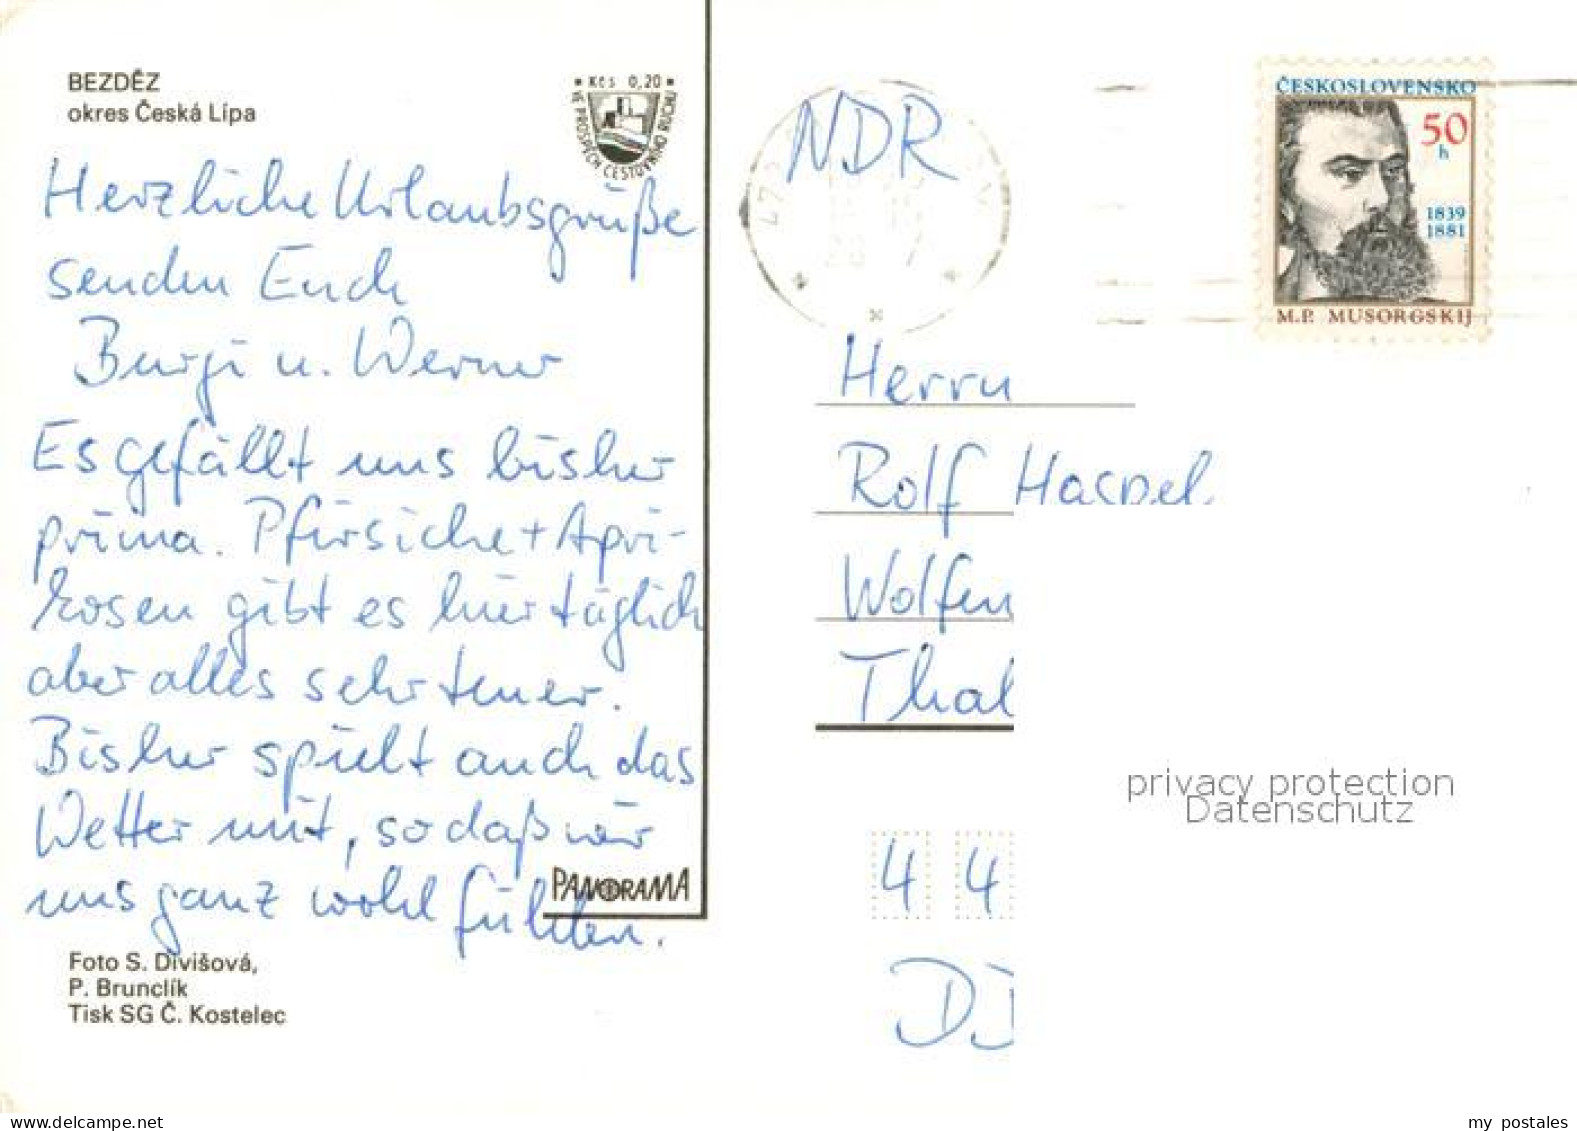 BEZDĚZ
okres Česká Lípa
Kčs 0,20
VE PROSPĚCH CESTOVNÍHO RUCHU
Herzliche Urlaubsgrüße
senden Euch
Burgi u. Werner
Es gefällt uns bisher
prima. Pfirsiche + Apri-
kosen gibt es hier täglich
aber alles sehr teuer.
Bisher spielt auch das
Wetter mit, so daß wir
uns ganz wohl fühlen.
PANORAMA
Foto S. Divišová,
P. Brunclík
Tisk SG Č. Kostelec
NDR
ČESKOSLOVENSKO
50
h
1839
1881
M.P. MUSORGSKIJ
Herrn
Rolf Haspel
Wolfen
Thal
privacy protection
Datenschutz
4 4
my postales